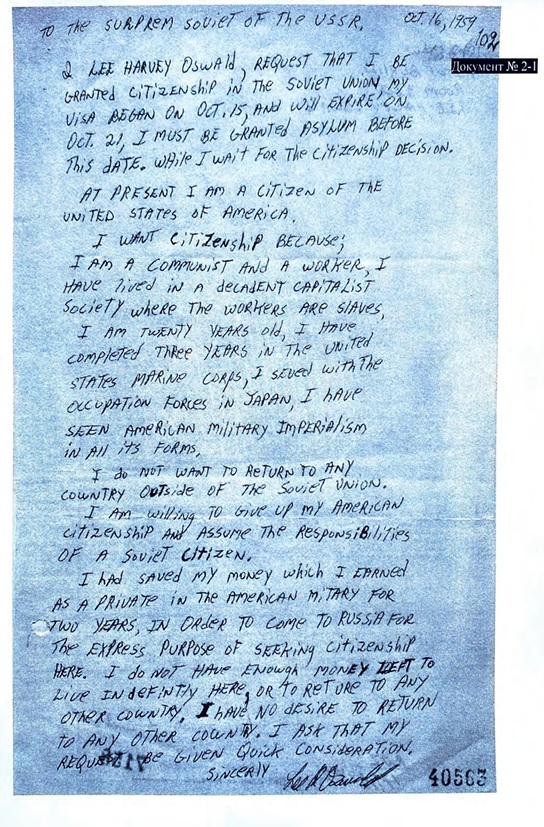 TO THE SURPREM SOVIET OF THE USSR. OCT. 16, 1959
102
Документ № 2-1
I LEE HARVEY OSWALD, REQUEST THAT I BE
GRANTED CITIZENSHIP IN THE SOVIET UNION, MY
VISA BEGAN ON OCT. 15, AND WILL EXPIRE ON
OCT. 21, I MUST BE GRANTED ASYLUM BEFORE
THIS DATE. WHILE I WAIT FOR THE CITIZENSHIP DECISION.
AT PRESENT I AM A CITIZEN OF THE
UNITED STATES OF AMERICA.
I WANT CITIZENSHIP BECAUSE;
I AM A COMMUNIST AND A WORKER, I
HAVE LIVED IN A DECADENT CAPITALIST
SOCIETY WHERE THE WORKERS ARE SLAVES,
I AM TWENTY YEARS OLD, I HAVE
COMPLETED THREE YEARS IN THE UNITED
STATES MARINE CORPS, I SEVED WITH THE
OCCUPATION FORCES IN JAPAN, I HAVE
SEEN AMERICAN MILITARY IMPERIALISM
IN ALL ITS FORMS,
I DO NOT WANT TO RETURN TO ANY
COUNTRY OUTSIDE OF THE SOVIET UNION.
I AM WILLING TO GIVE UP MY AMERICAN
CITIZENSHIP AND ASSUME THE RESPONSIBILITIES
OF A SOVIET CITIZEN.
I HAD SAVED MY MONEY WHICH I EARNED
AS A PRIVATE IN THE AMERICAN MITARY FOR
TWO YEARS, IN ORDER TO COME TO RUSSIA FOR
THE EXPRESS PURPOSE OF SEEKING CITIZENSHIP
HERE. I DO NOT HAVE ENOUGH MONEY LEFT TO
LIVE INDEFINTLY HERE, OR TO RETURE TO ANY
OTHER COUNTRY. I HAVE NO DESIRE TO RETURN
TO ANY OTHER COUNTRY. I ASK THAT MY
REQUEST BE GIVEN QUICK CONSIDERATION.
SINCERLY
40563